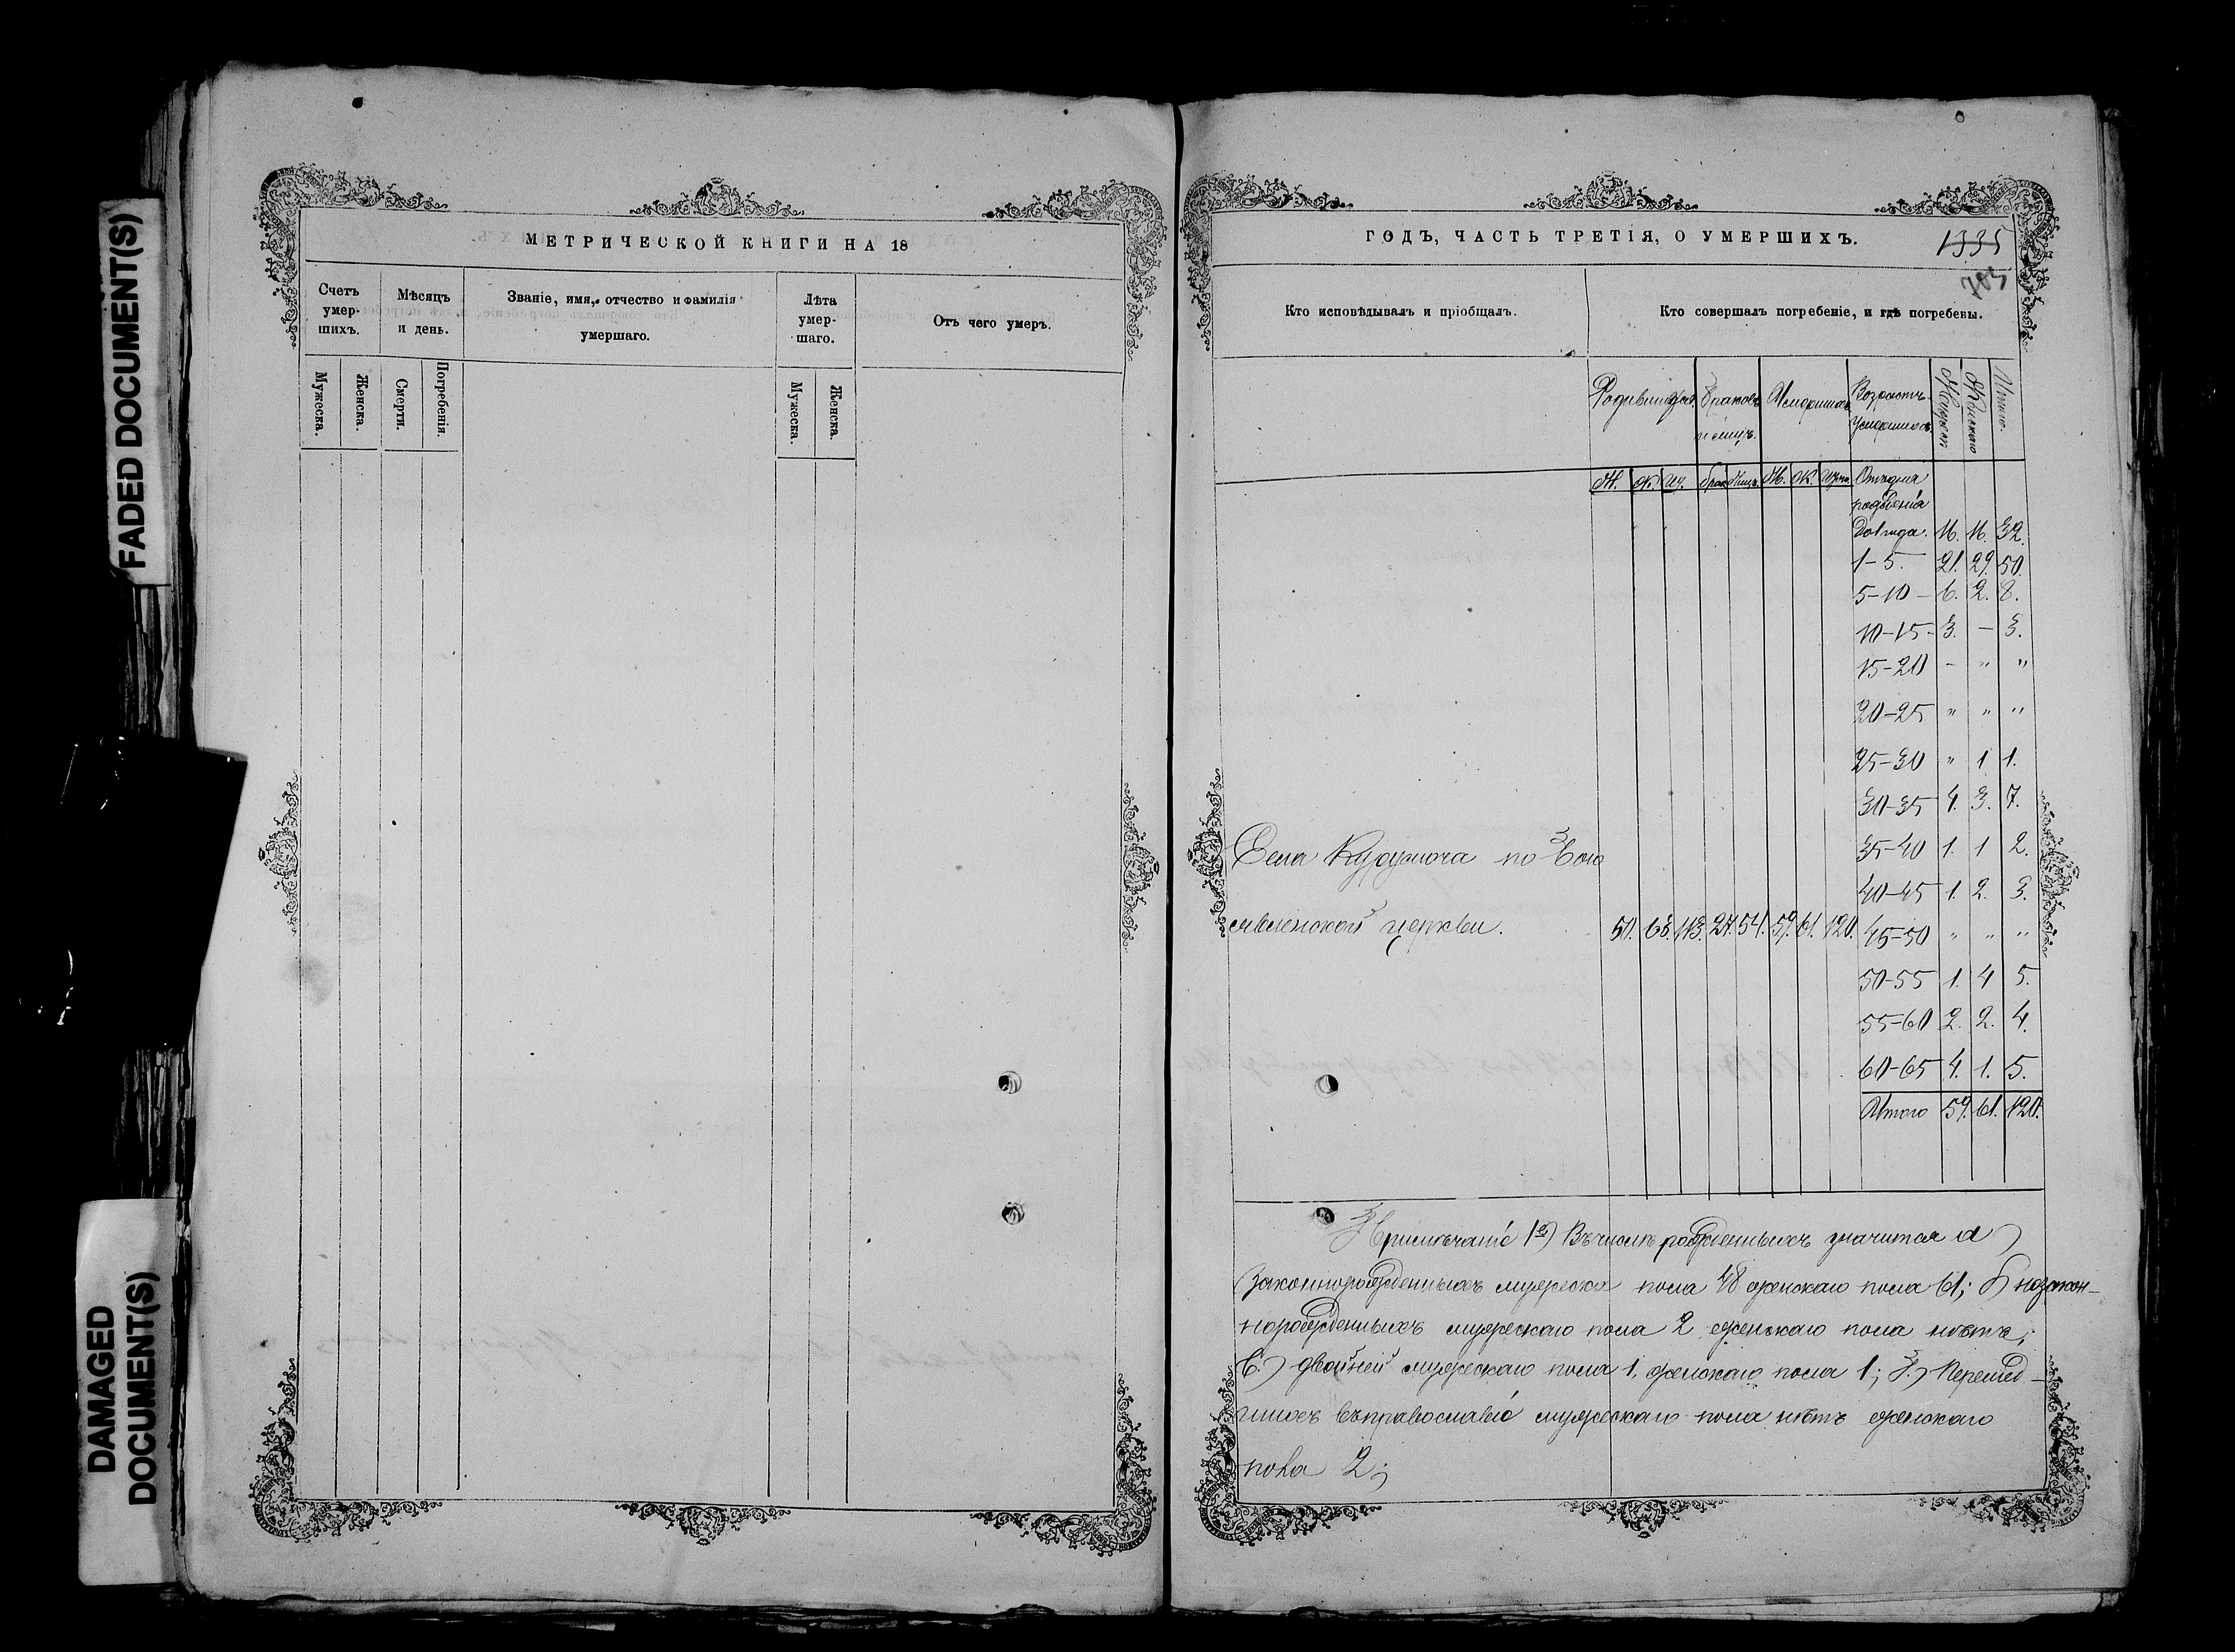 FADED DOCUMENT(S)
DAMAGED
DOCUMENT(S)
МЕТРИЧЕСКОЙ КНИГИ НА 18
Счетъ умер-шихъ.
Мѣсяцъ и день.
Званіе, имя, отчество и фамилія умершаго.
Лѣта умер-шаго.
Отъ чего умеръ.
Мужеска.
Женска.
Смерти.
Погребенія.
Мужеска.
Женска.
ГОДЪ, ЧАСТЬ ТРЕТІЯ, О УМЕРШИХЪ.
1335
703
Кто исповѣдывалъ и пріобщалъ.
Кто совершалъ погребеніе, и гдѣ погребены.
Родившихся. Браковъ и лицъ. Умершихъ Возрастъ умершихъ. Мужской Женскаго Итого.
М. Ж. Ит. Брак. Лицъ. М. Ж. Итог. Отъ дня
рожденія
до 1 года. 16. 16. 32.
1-5. 21. 29. 50.
5-10 - 6. 2. 8.
10-15 - 3. - 3.
15-20 - " "
20-25 " " "
25-30 " 1 1.
30-35 4. 3. 7.
Села Курумоча по Бого 35-40 1. 1 2.
40-45 1. 2. 3.
явленской церкви. 50. 63. 113. 27. 54. 59. 61. 120. 45-50 " " "
50-55 1. 4 5.
55-60 2. 2. 4.
60-65 4. 1. 5.
Итого 59. 61. 120.
Примѣчаніе 1е) Въ числѣ рожденныхъ значится а)
законнорожденныхъ мужеска пола 48 женскаго пола 61; б) незакон-
норожденныхъ мужескаго пола 2 женскаго пола нѣтъ;
в.) двойней мужескаго пола 1, женскаго пола 1; г.) Перешед-
шихъ въ православіе мужескаго пола нѣтъ женскаго
пола 2;